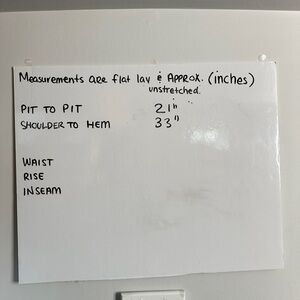 Measurements are flat lay & Approx. (inches)
unstretched.
PIT TO PIT 21"
SHOULDER TO HEM 33"
WAIST
RISE
INSEAM